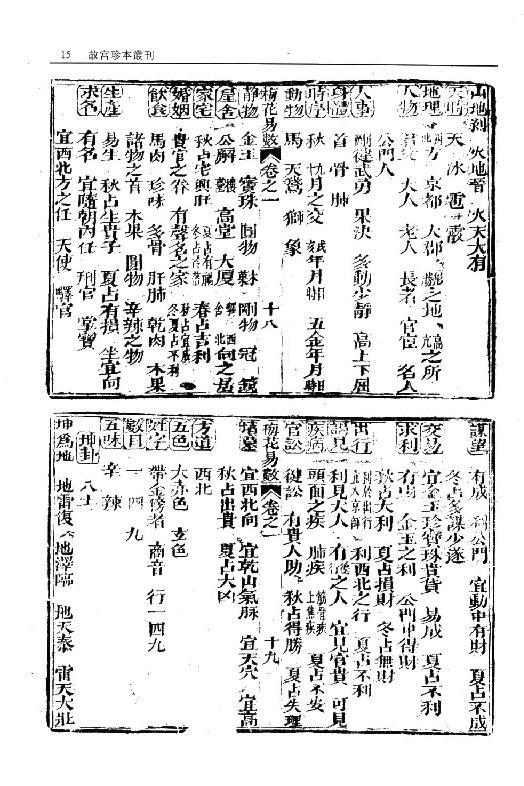 15 故宮珍本叢刊
山地剝 火地晉 火天大有
天時 天 冰 雹 霰
地理 西北方 京都 大郡 形勝之地 高亢之所
人物 君 父 大人 老人 長者 官宦 名人
公門人
人事 剛健武勇 果決 多動少靜 高上下屈
身體 首 骨 肺
時序 秋 九月十月之交 戌亥年月日時 五金年月日時
動物 馬 天鵞 獅 象
梅花易數 卷之一 十八
靜物 金玉 寶珠 圓物 木果 剛物 冠 鏡
屋舍 公廨 樓臺 高堂 大厦 驛舍 西北向之居
家宅 秋占宅興旺 夏占有禍 冬占冷落 春占吉利
婚姻 貴官之眷 有聲名之家 秋占宜成 冬夏占不利
飲食 馬肉 珍味 多骨 肝肺 乾肉 木果
諸物之首 木果 圓物 辛辣之物
生產 易生 秋占生貴子 夏占有損 坐宜向
求名 有名 宜隨朝內任 刑官 掌
宜西北方之任 天使 驛官
謀望 有成 利公門 宜動中有財 夏占不成
冬占多謀少遂
交易 宜金玉珍寶珠貴貨 易成 夏占不利
求利 有財 金玉之利 公門中得財
秋占大利 夏占損財 冬占無財
出行 利於出行 宜入京師 利西北之行 夏占不利
謁見 利見大人 有德行之人 宜見官貴 可見
疾病 頭面之疾 肺疾 筋骨疾 上焦疾 夏占不安
官訟 健訟 有貴人助 秋占得勝 夏占失理
梅花易數 卷之一 十九
墳墓 宜西北向 宜乾山氣脉 宜天穴 宜高
秋占出貴 夏占大凶
方道 西北
五色 大赤色 玄色
姓字 帶金旁者 商音 行一四九
數目 一 四 九
五味 辛 辣
坤卦 八土
坤爲地 地雷復 地澤臨 地天泰 雷天大壯